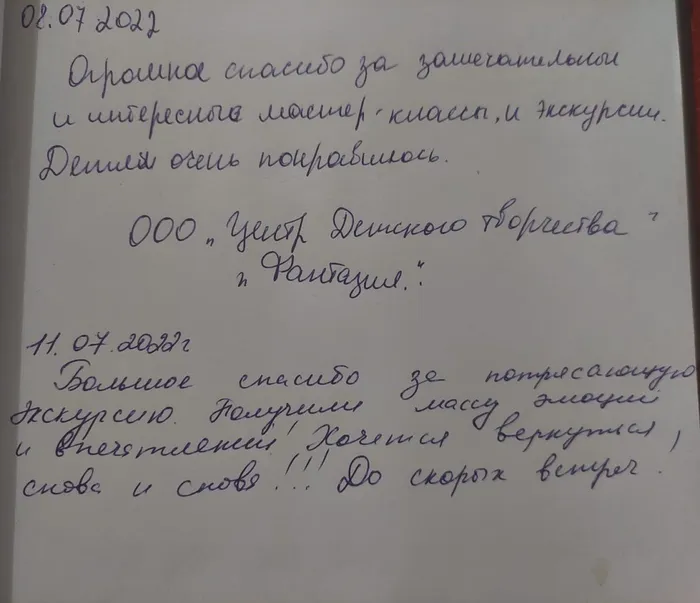 08.07 2022
Огромное спасибо за замечательные
и интересные мастер-классы, и экскурсии.
Детям очень понравилось.
ООО „Центр Детского творчества"
„Фантазия."
11.07.2022г
Большое спасибо за потрясающую
экскурсию. Получили массу эмоций
и впечатлений! Хочется вернуться,
снова и снова!!! До скорых встреч!